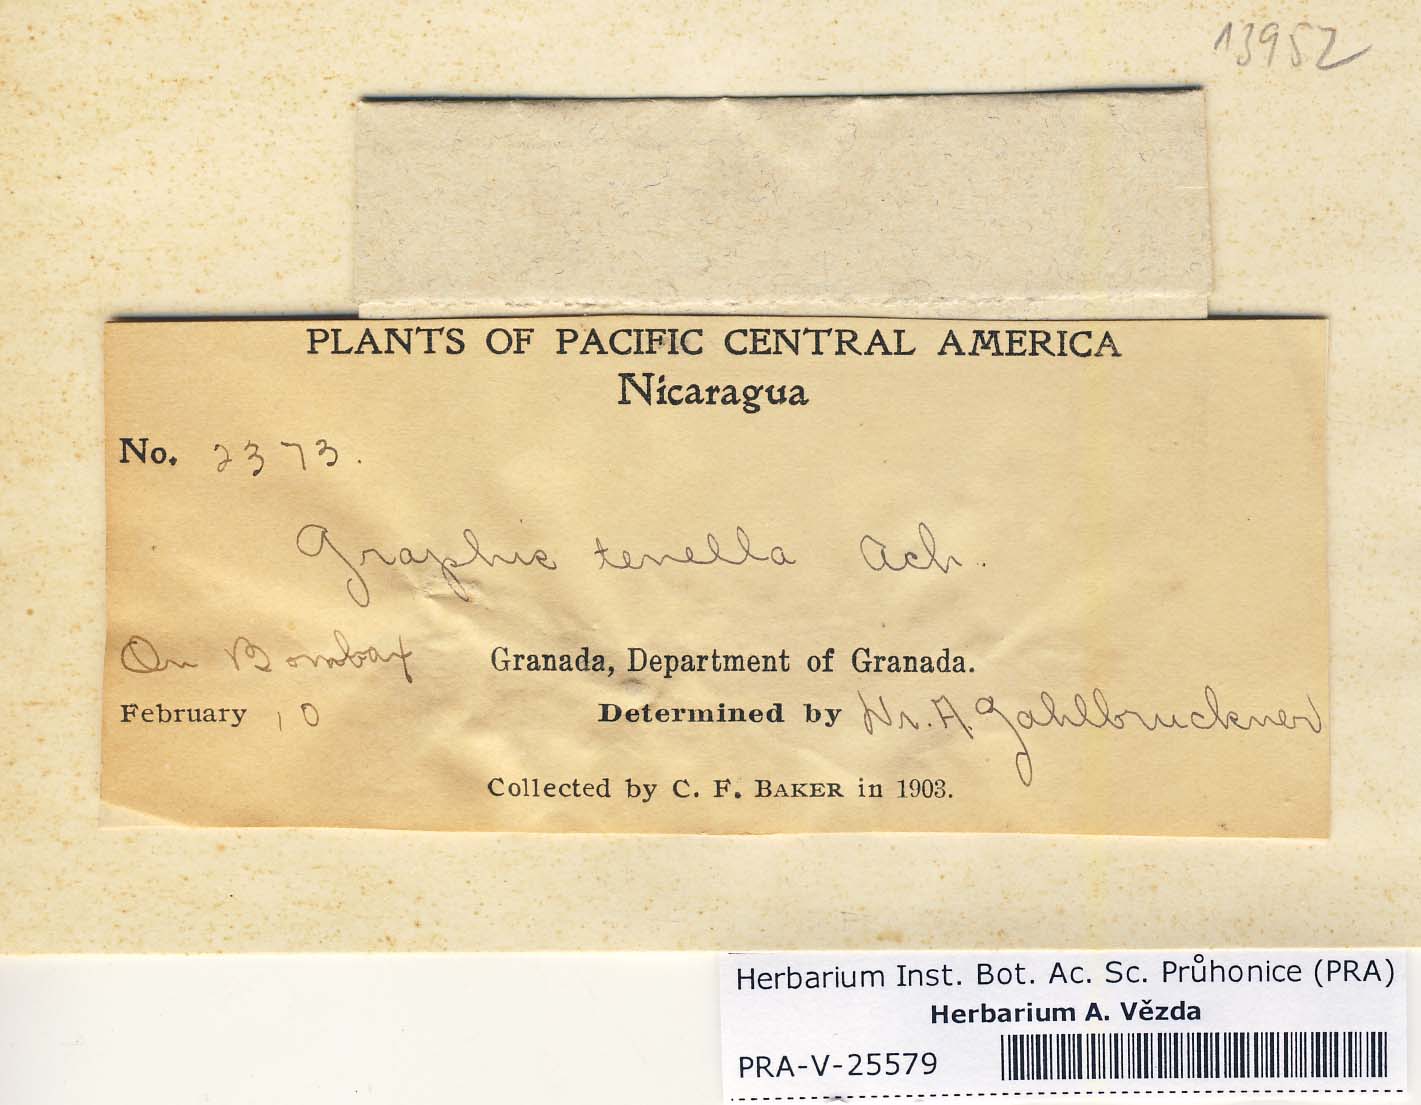 13952
PLANTS OF PACIFIC CENTRAL AMERICA
Nicaragua
No. 2373.
Graphis tenella Ach.
On Bombax Granada, Department of Granada.
February 10 Determined by Dr. A. Zahlbruckner
Collected by C. F. BAKER in 1903.
Herbarium Inst. Bot. Ac. Sc. Průhonice (PRA)
Herbarium A. Vězda
PRA-V-25579